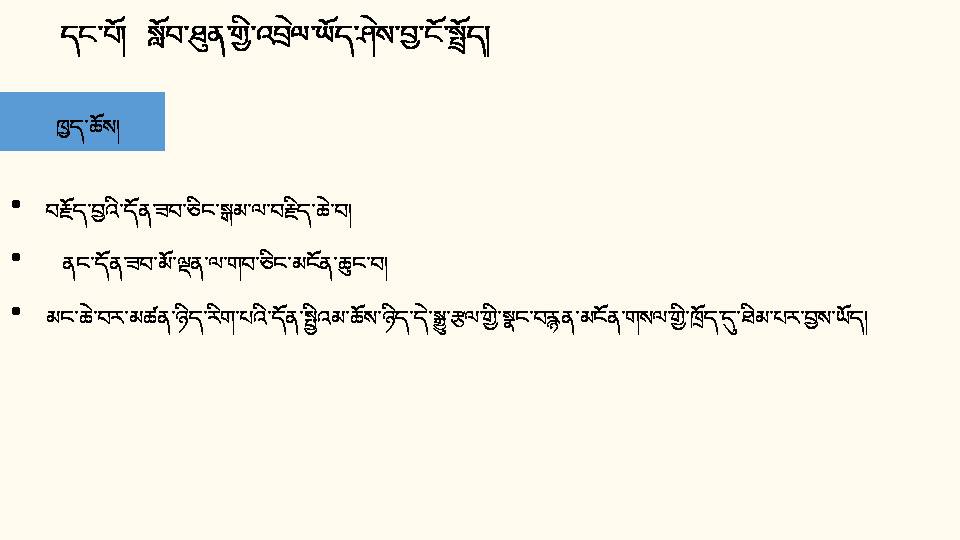 དང་པོ། སློབ་ཐུན་གྱི་འབྲེལ་ཡོད་ཤེས་བྱ་ངོ་སྤྲོད།
ཁྱད་ཆོས།
• བརྗོད་བྱའི་དོན་ཟབ་ཅིང་སྒམ་ལ་བརྗིད་ཆེ་བ།
• ནང་དོན་ཟབ་མོ་ལྡན་ལ་གབ་ཅིང་མངོན་ཆུང་བ།
• མང་ཆེ་བར་མཚན་ཉིད་རིག་པའི་དོན་སྤྱིའམ་ཆོས་ཉིད་དེ་སྒྱུ་རྩལ་གྱི་སྣང་བརྙན་མངོན་གསལ་གྱི་ཁྲོད་དུ་ཐིམ་པར་བྱས་ཡོད།